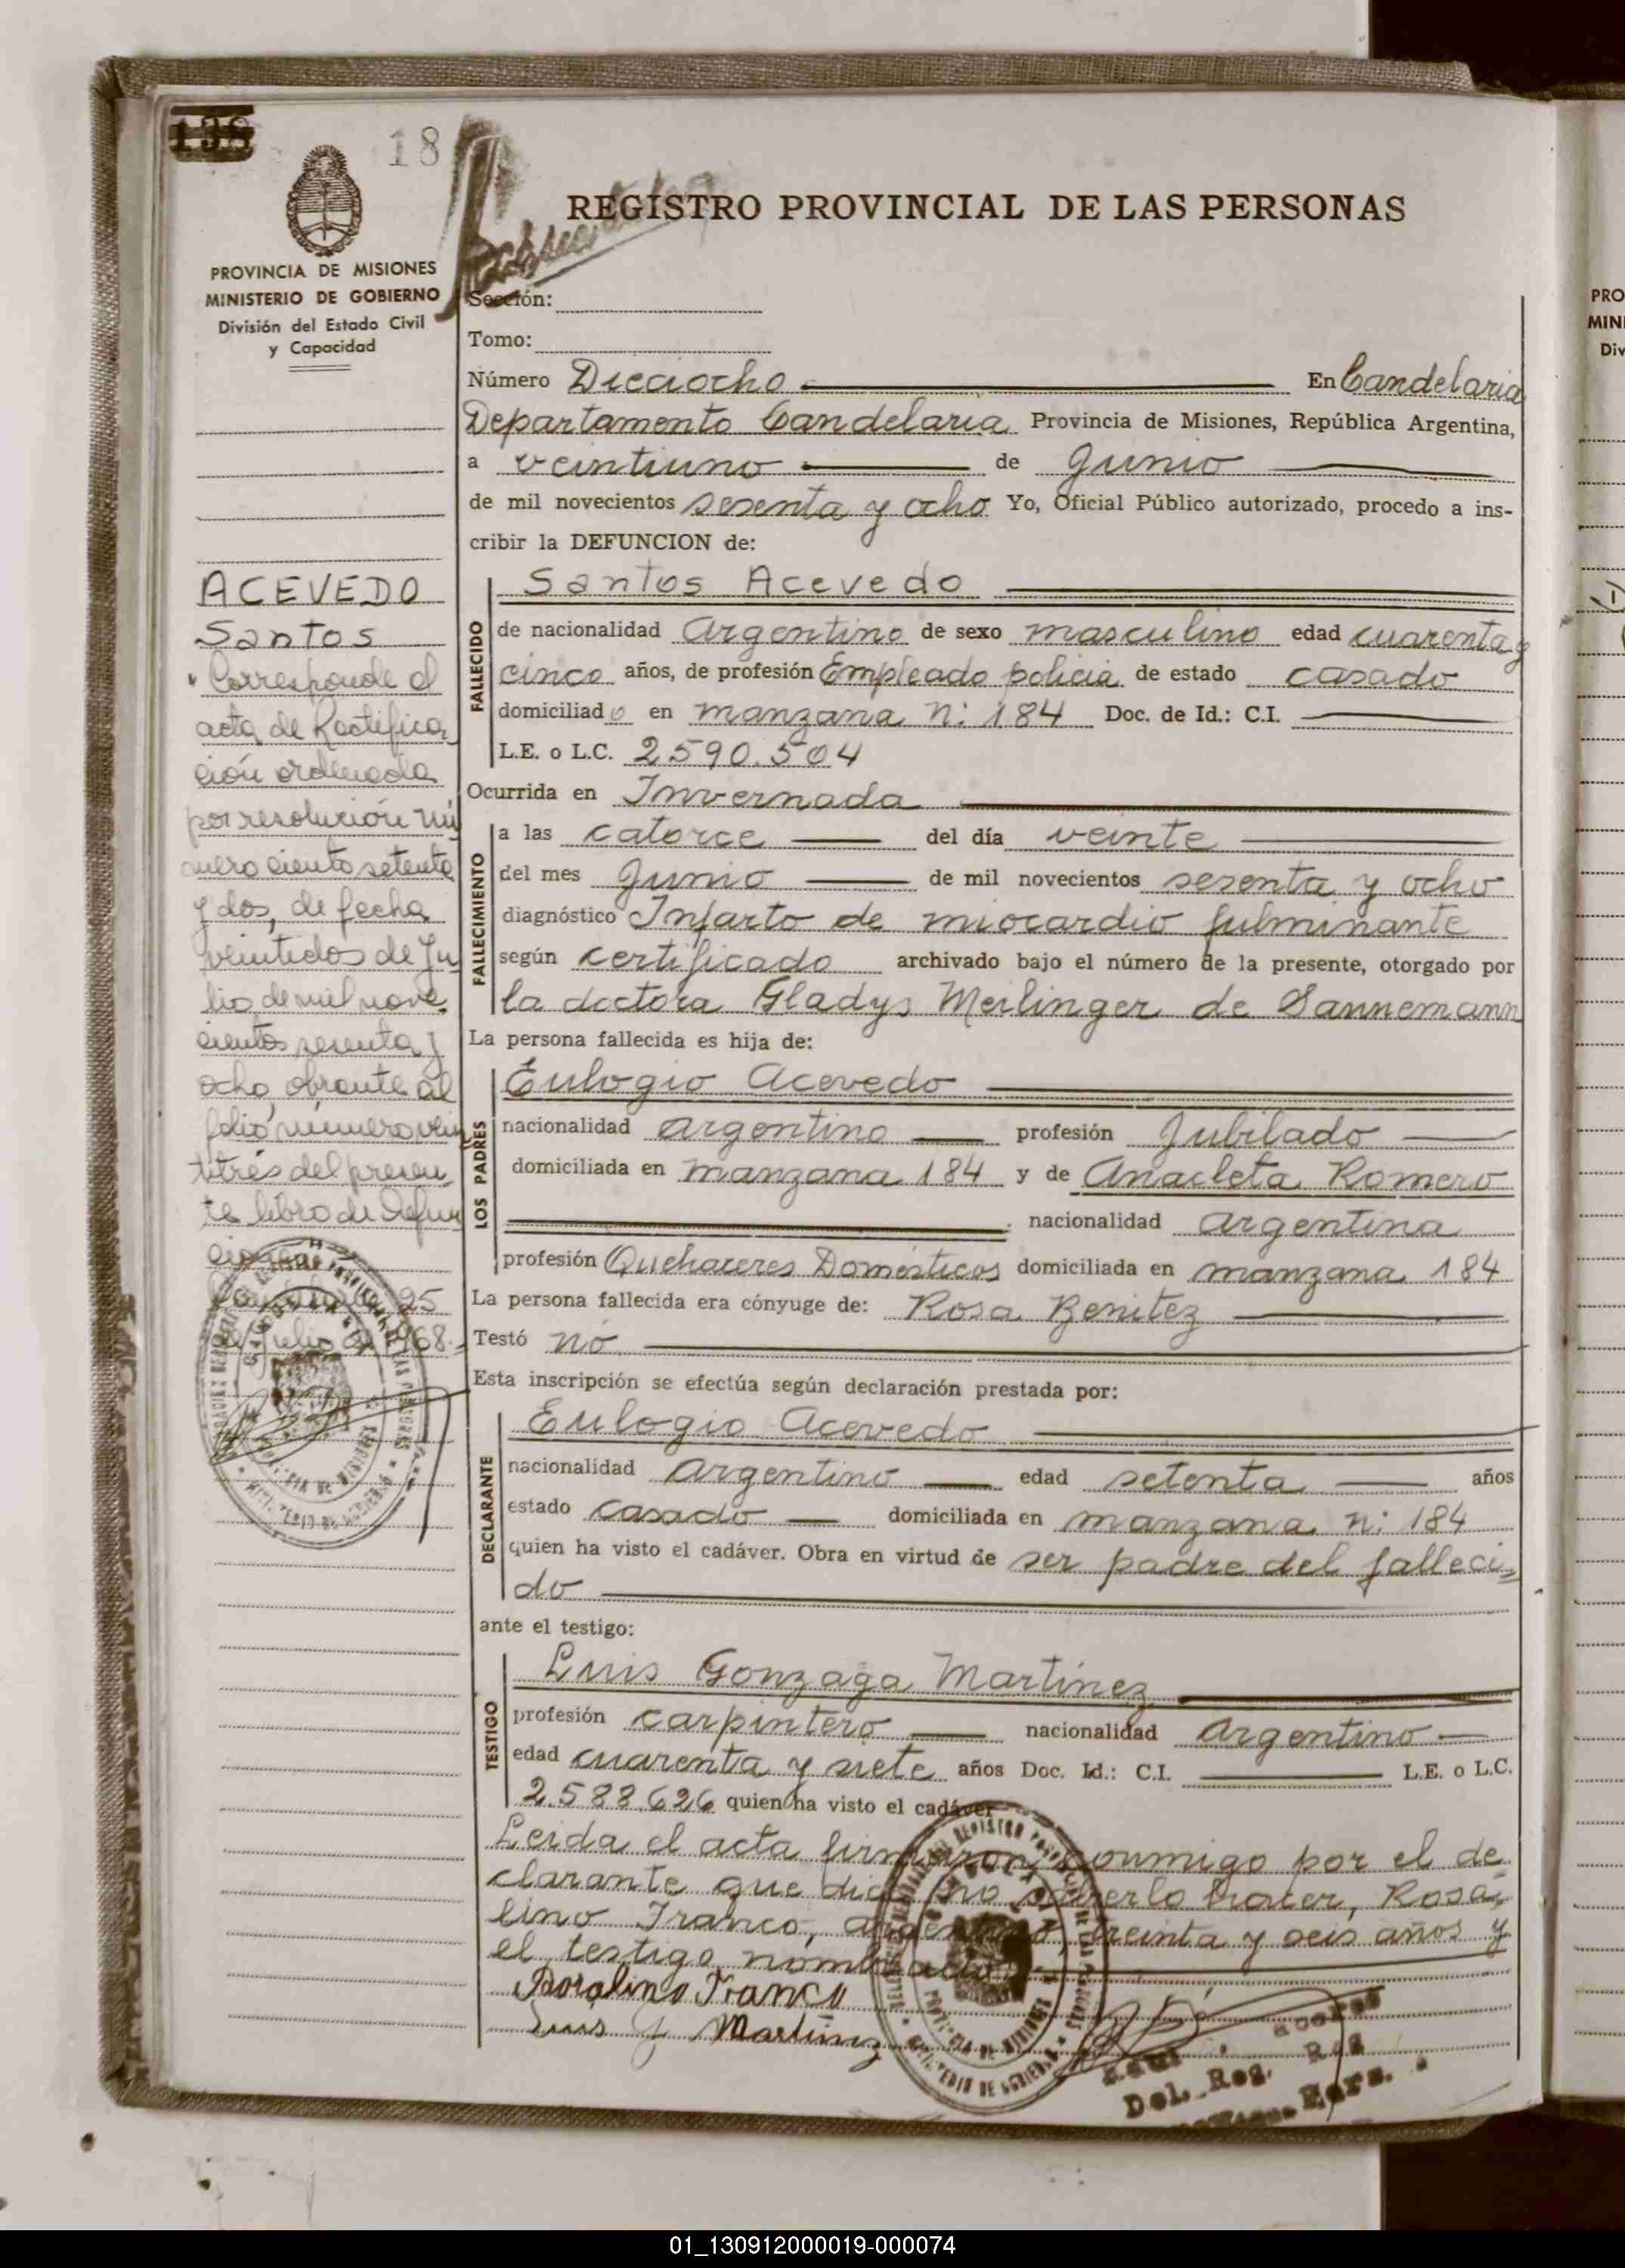 18
REGISTRO PROVINCIAL DE LAS PERSONAS
PROVINCIA DE MISIONES
MINISTERIO DE GOBIERNO
División del Estado Civil
y Capacidad
ACEVEDO
Santos
Corresponde el
acta de Rectifica
ción ordenada
por resolución nú
mero ciento setenta
y dos, de fecha
veintidos de Ju
lio de mil nove
cientos sesenta y
ocho, obrante al
folio número vein
titrés del presen
te libro de Defun
ciones
25
de Julio de 1968.-
Sección:
Tomo:
Número Dieciocho En Candelaria
Departamento Candelaria Provincia de Misiones, República Argentina,
a veintiuno de Junio
de mil novecientos sesenta y ocho Yo, Oficial Público autorizado, procedo a ins-
cribir la DEFUNCION de:
Santos Acevedo
FALLECIDO
de nacionalidad Argentino de sexo masculino edad cuarenta y
cinco años, de profesión Empleado policia de estado casado
domiciliado en manzana n: 184 Doc. de Id.: C.I.
L.E. o L.C. 2590.504
Ocurrida en Invernada
FALLECIMIENTO
a las catorce del día veinte
del mes Junio de mil novecientos sesenta y ocho
diagnóstico Infarto de miocardio fulminante
según certificado archivado bajo el número de la presente, otorgado por
la doctora Gladys Meilinger de Sannemann
La persona fallecida es hija de:
LOS PADRES
Eulogio Acevedo
nacionalidad argentino profesión Jubilado
domiciliada en manzana 184 y de Anacleta Romero
nacionalidad argentina
profesión Quehaceres Domésticos domiciliada en manzana 184
La persona fallecida era cónyuge de: Rosa Benitez
Testó nó
Esta inscripción se efectúa según declaración prestada por:
DECLARANTE
Eulogio Acevedo
nacionalidad argentino edad setenta años
estado casado domiciliada en manzana n: 184
quien ha visto el cadáver. Obra en virtud de ser padre del falleci=
do
ante el testigo:
TESTIGO
Luis Gonzaga Martínez
profesión carpintero nacionalidad argentino
edad cuarenta y siete años Doc. Id.: C.I. L.E. o L.C.
2.588.626 quien ha visto el cadáver
Leida el acta firmaron conmigo por el de
clarante que dice no saberlo hacer, Rosa=
lino Franco, argentino, treinta y seis años y
el testigo nombrado
Rosalino Franco
Luis G Martinez
Del. Reg.
PRO
MINI
Div
01_130912000019-000074